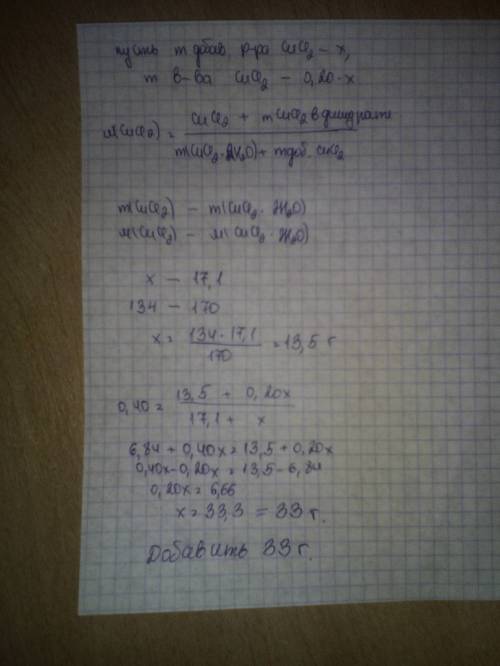 пусть m добав. р-ра CuCl₂ - x,
m в-ва CuCl₂ - 0,20·x
CuCl₂ + mCuCl₂ в дигидрате
w(CuCl₂) =
m(CuCl₂·2H₂O) + m доб. CuCl₂
m(CuCl₂) - m(CuCl₂·2H₂O)
M(CuCl₂) - M(CuCl₂·2H₂O)
x - 17,1
134 - 170
x = 134·17,1 / 170 = 13,5 г
0,40 = 13,5 + 0,20x / 17,1 + x
6,84 + 0,40x = 13,5 + 0,20x
0,40x - 0,20x = 13,5 - 6,84
0,20x = 6,66
x = 33,3 = 33 г.
Добавить 33 г.